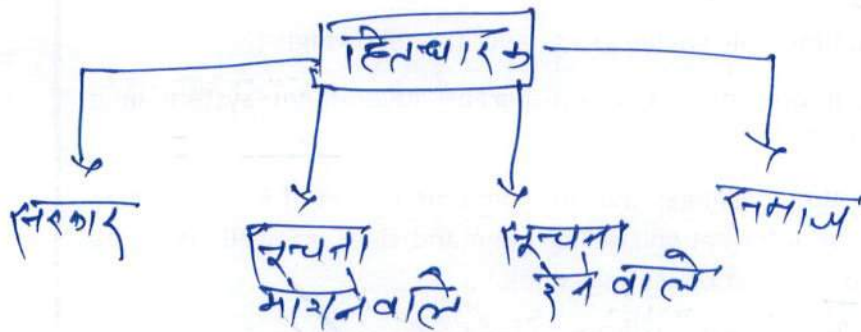 हितधारक
सरकार
सूचना
मांगने वाले
सूचना
देने वाले
समाज